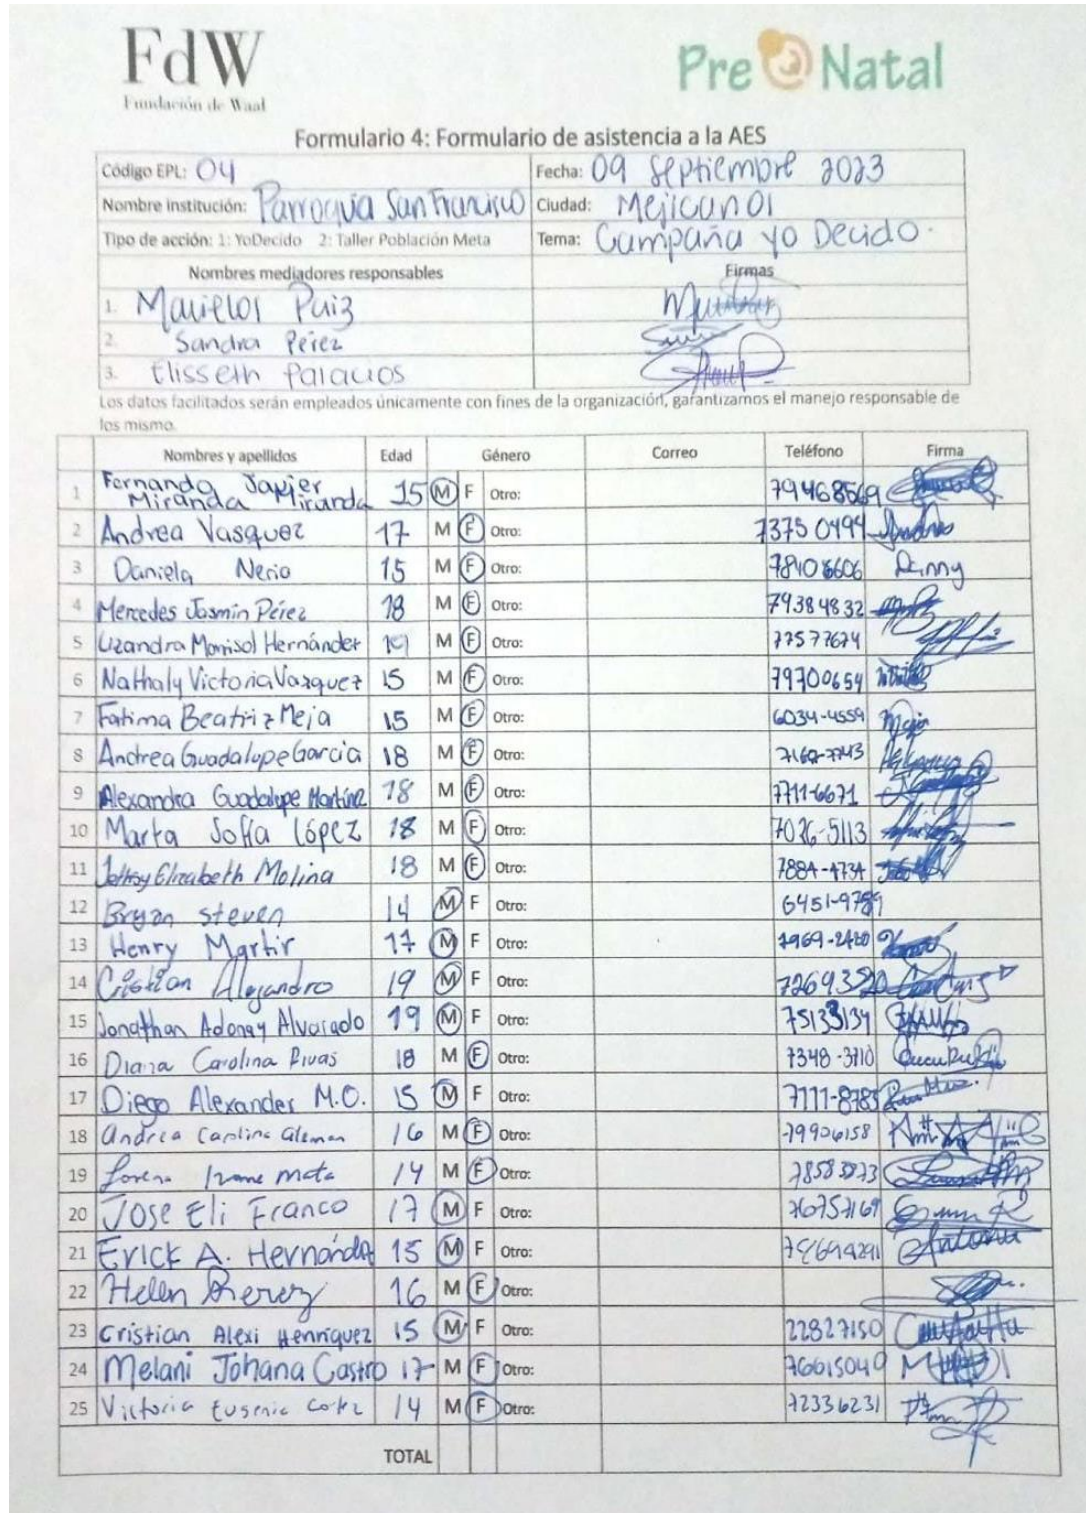 FdW
Fundación de Waal
Pre Natal
Formulario 4: Formulario de asistencia a la AES
Código EPL: 04 Fecha: 09 Septiembre 2023
Nombre institución: Parroquia San Francisco Ciudad: Mejicanos
Tipo de acción: 1: YoDecido 2: Taller Población Meta Tema: Campaña yo Decido.
Nombres mediadores responsables Firmas
1. Marielos
2. Sandra Pérez
3. Elisseth Palacios
Los datos facilitados serán empleados únicamente con fines de la organización, garantizamos el manejo responsable de
los mismo.
Nombres y apellidos Edad Género Correo Teléfono Firma
1 Fernando Javier Miranda Miranda 15 M F Otro: 79468569
2 Andrea Vasquez 17 M F Otro: 7375 0494
3 Daniela Nerio 15 M F Otro: 78408606 Danny
4 Mercedes Jasmín Pérez 18 M F Otro: 79384832
5 Lizandra Marisol Hernández 19 M F Otro: 77577674
6 Nathaly Victoria Vazquez 15 M F Otro: 79700654
7 Fatima Beatriz Meja 15 M F Otro: 6034-4559 Mejia
8 Andrea Guadalupe Garcia 18 M F Otro: 7162-7743
9 Alexandra Guadalupe Martínez 18 M F Otro: 7711-6671
10 Marta Sofía López 18 M F Otro: 7026-5113
11 Elizabeth Molina 18 M F Otro: 7884-4734
12 Bryan steven 14 M F Otro: 6451-9789
13 Henry Martir 17 M F Otro: 7969-2420
14 Cristian Alejandro 19 M F Otro: 72693520
15 Jonathan Adonay Alvarado 19 M F Otro: 75133134
16 Diana Carolina Rivas 18 M F Otro: 7348-3710
17 Diego Alexander M.O. 15 M F Otro: 7111-8785
18 Andrea Carolina Aleman 16 M F Otro: 79906158
19 Lorena Ivone Mata 14 M F Otro: 78583973
20 Jose Eli Franco 17 M F Otro: 76757169
21 Erick A. Hernández 15 M F Otro: Antonio
22 Helen Perez 16 M F Otro:
23 Cristian Alexi Henriquez 15 M F Otro: 22827150
24 Melani Johana Castro 17 M F Otro: 76015049
25 Victoria Eugenia Cortez 14 M F Otro: 72336231
TOTAL